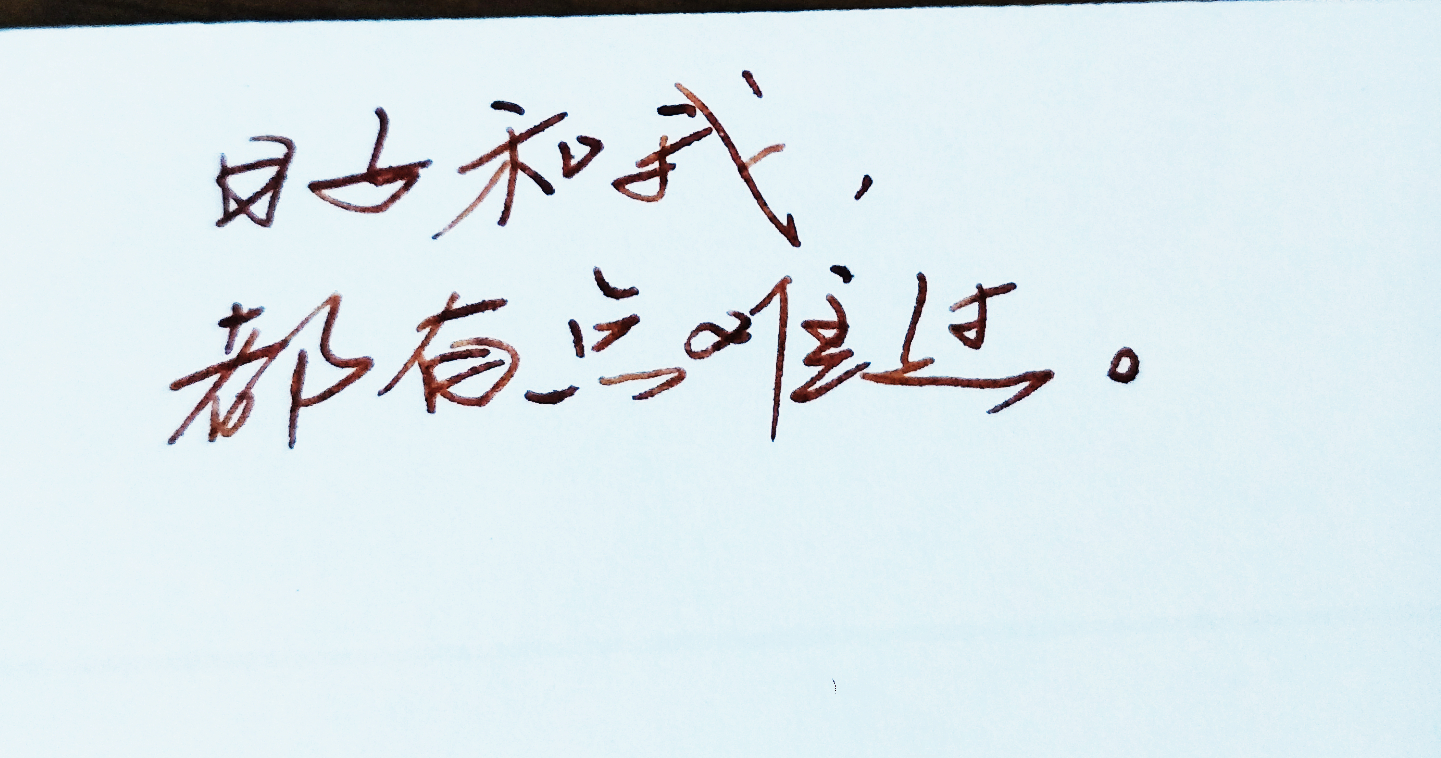 日与和我，
都有点难过。